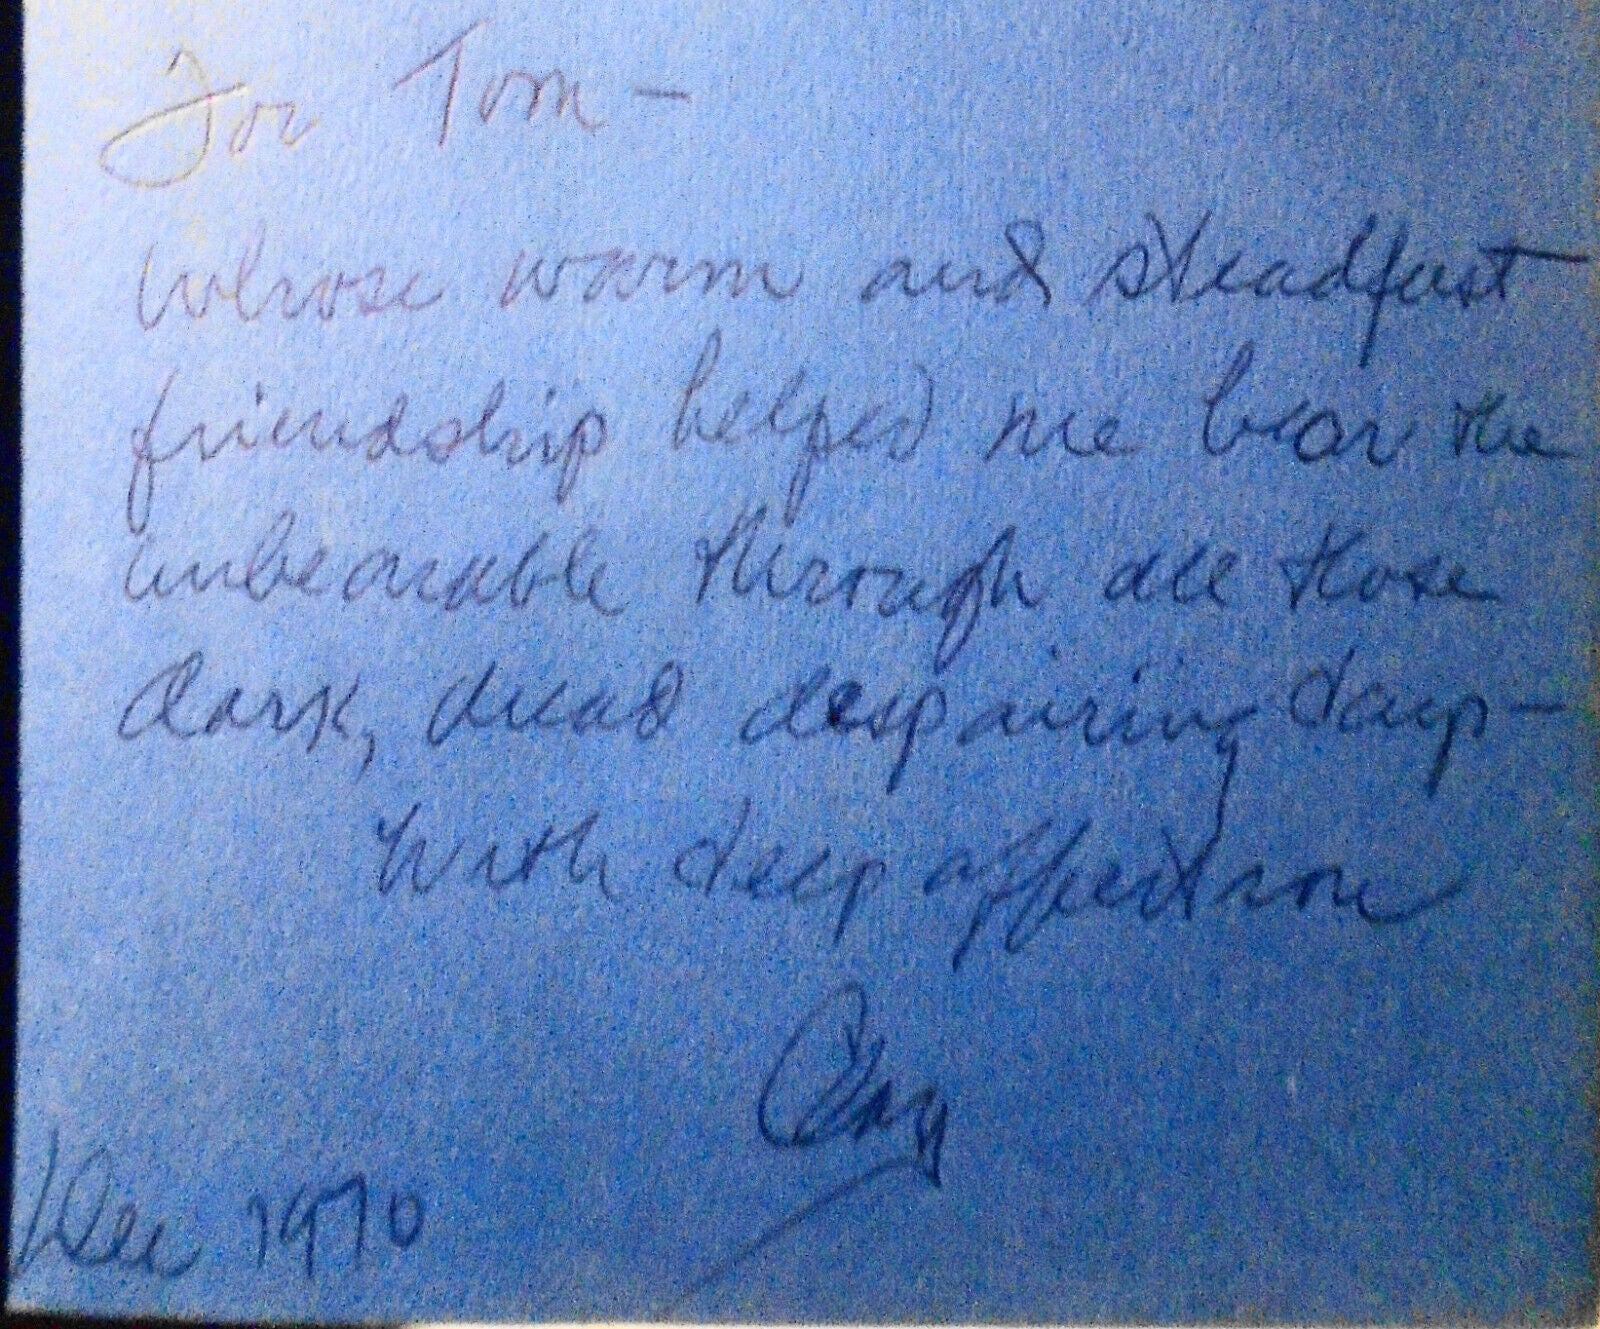 For Tom –
Whose warm and steadfast
friendship helped me bear the
unbearable through all those
dark, dead despairing days –
With deep affection
Dec 1970